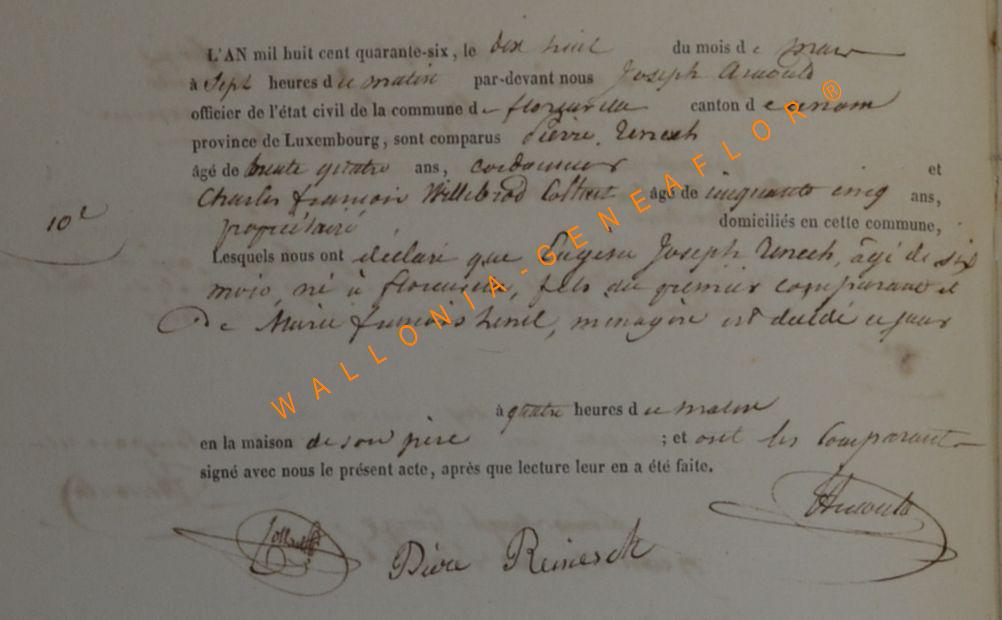 L'AN mil huit cent quarante-six, le dix huit du mois de mars
à Sept heures du matin par-devant nous Joseph Arnould
officier de l'état civil de la commune de florenville canton de
province de Luxembourg, sont comparus Pierre
âgé de trente quatre ans, cordonnier et
Charles françois Willebrod âgé de cinquante cinq ans,
10e
propriétaire domiciliés en cette commune,
Lesquels nous ont déclaré que Eugène Joseph âgé de six
mois, né à florenville, fils du premier comparant et
De Marie françoise menagère est decédé ce jour
à quatre heures du matin
en la maison de son père ; et ont les Comparants
signé avec nous le présent acte, après que lecture leur en a été faite.
Arnould
Pierre
WALLONIA-GENEAFLOR®